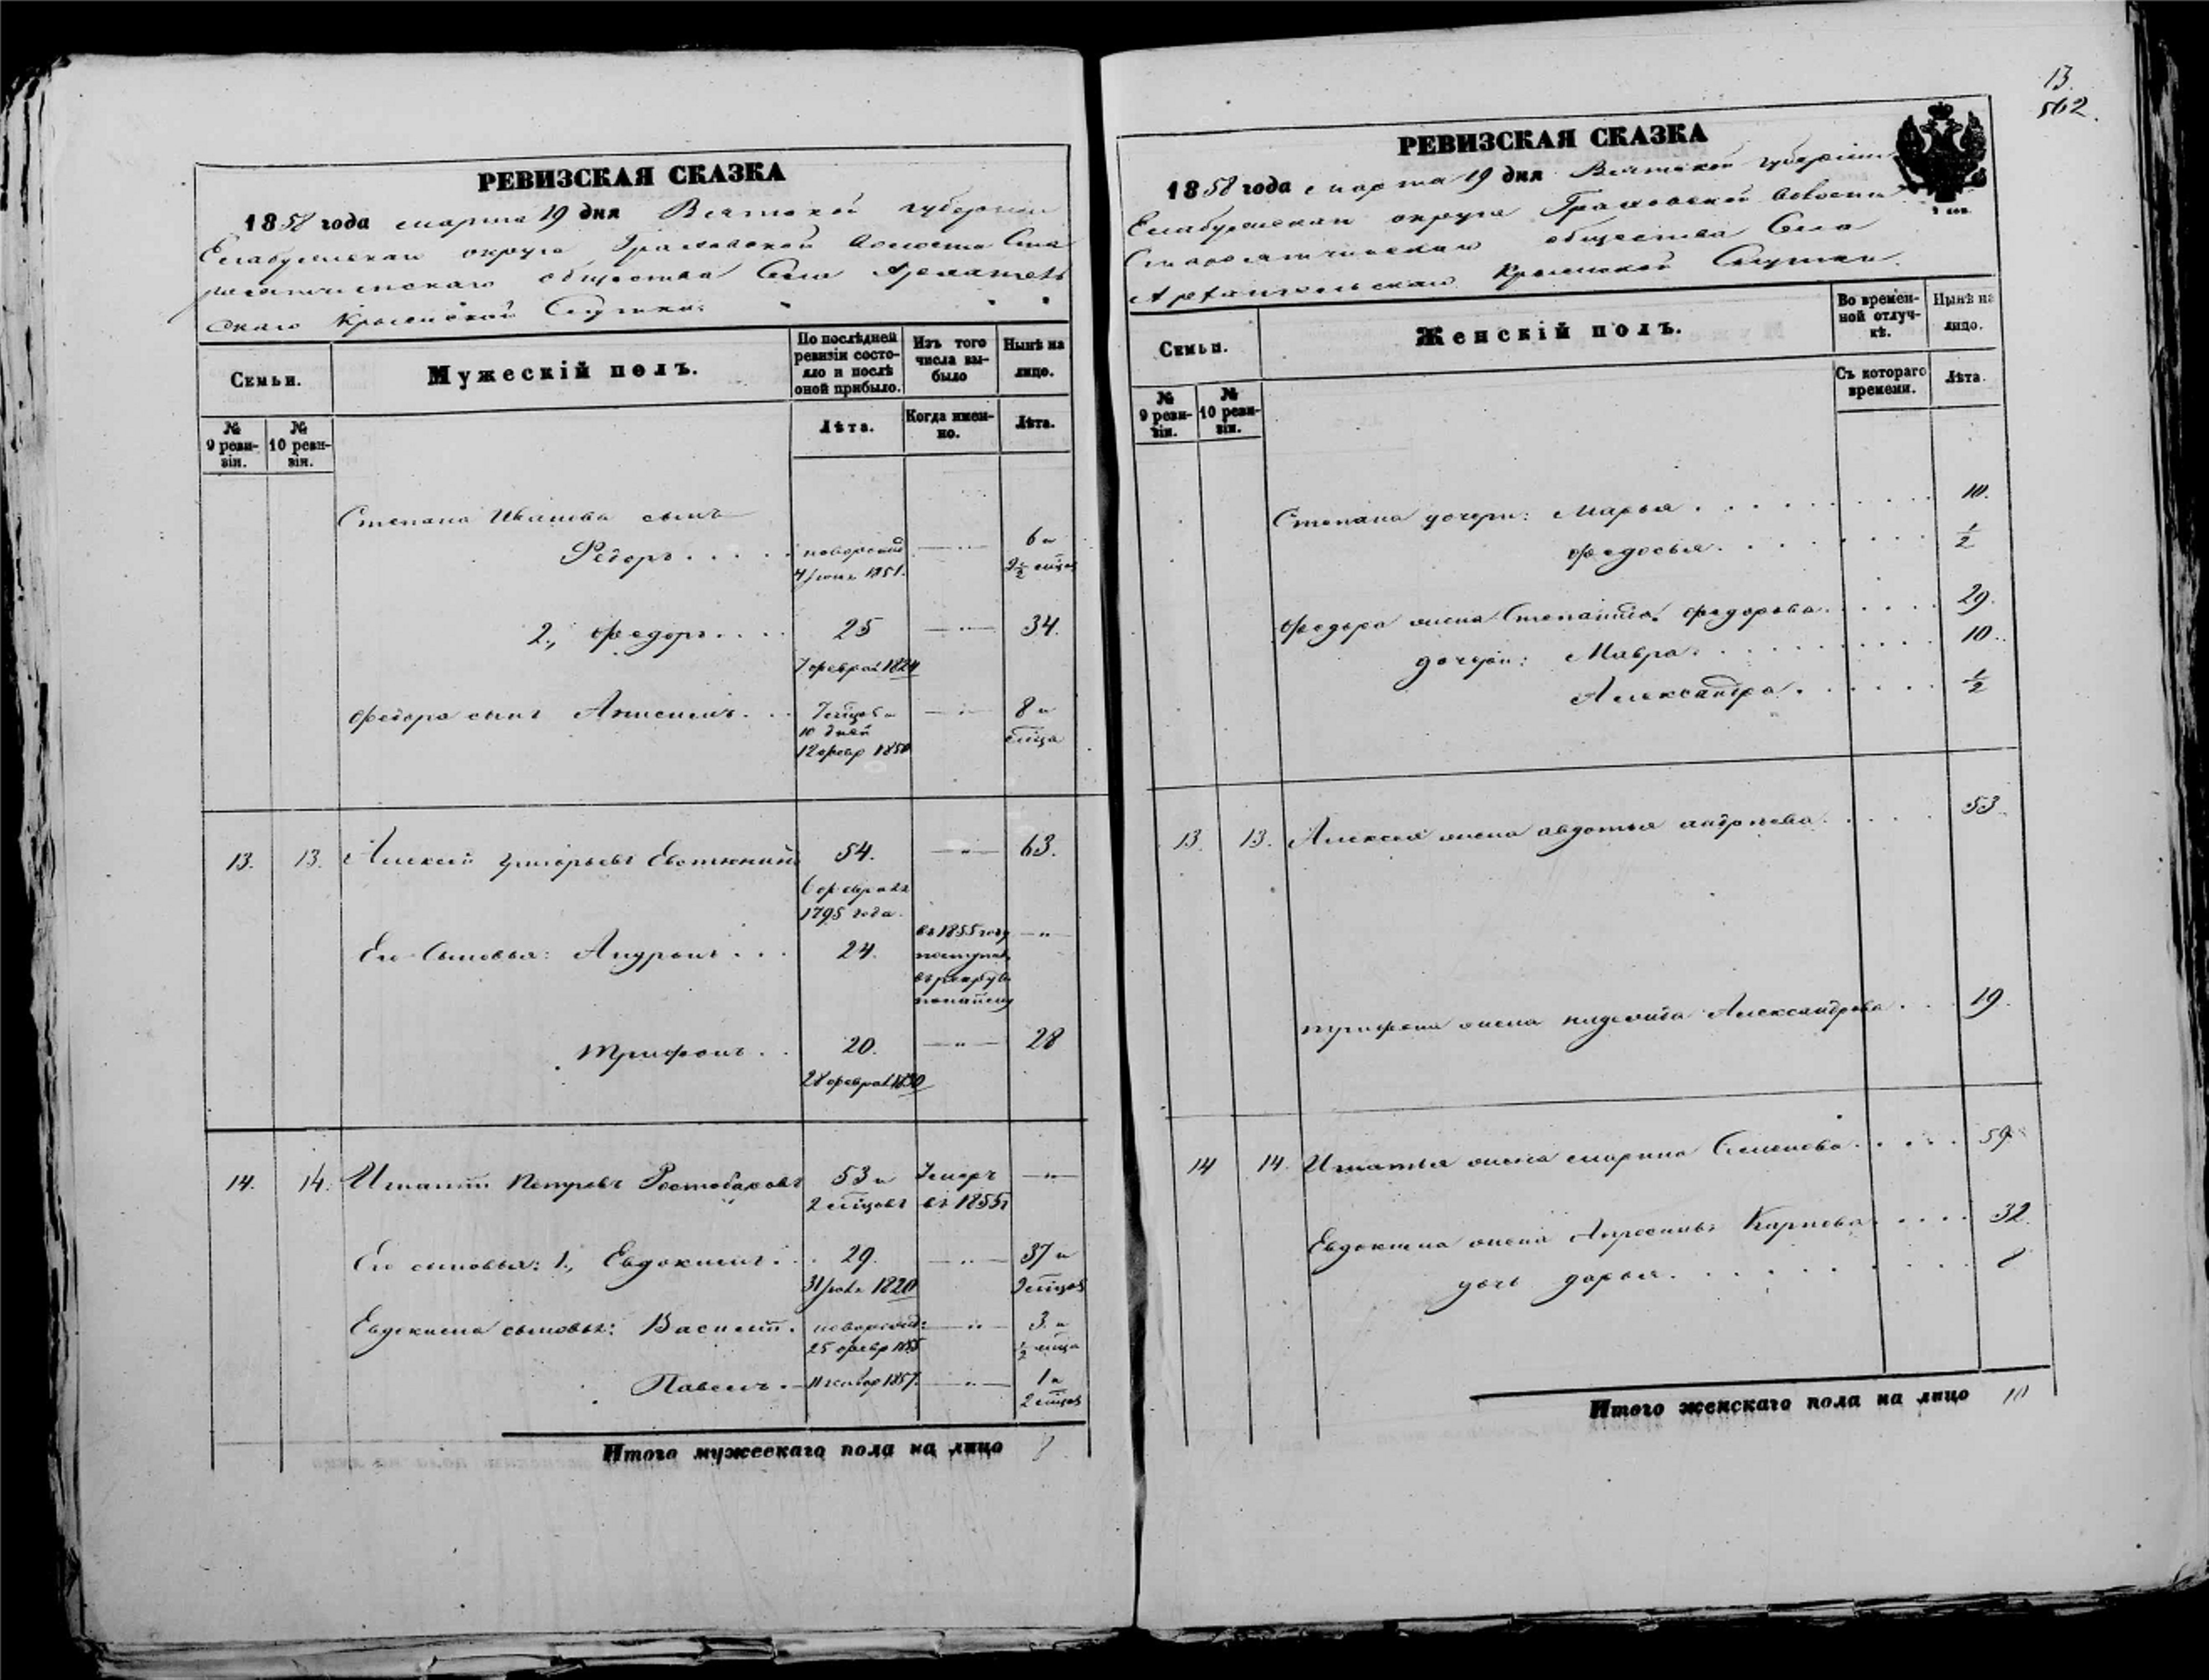 13.
562.
РЕВИЗСКАЯ СКАЗКА
1858 года марта 19 дня Вятской губернiи
Елабужскаго округа Граховской волости Ста
общества Села Архангель
скаго Крымской Слудки.
Семьи.
Мужескiй полъ.
По послѣдней ревизiи состояло и послѣ оной прибыло.
Изъ того числа выбыло
Нынѣ на лицо.
№ 9 ревизiи.
№ 10 ревизiи.
Лѣта.
Когда именно.
Лѣта.
Степана Иванова сынъ
Ѳедоръ . . . . . новорожд 6 и
4 1851. 2½ мѣсц
2., Федоръ . . . . 25 — „ — 34.
7 феврал 1824
Федора сынъ Анисимъ . . . 7 мѣсцов и — „ — 8 и
10 дней мѣсца
12 февр 1850
13. 13. Алексей Григорьевъ 54. — „ — 63.
6 февраля
1795 года.
Его Сыновья: Андронъ . . . 24. въ 1855 году — „ —
поступилъ
въ рекруты
Трифонъ . . 20. — „ — 28
28 феврал 1830
14. 14. Игнатiй Петровъ 53 и Умеръ — „ —
2 мѣсцовъ въ 1855г
Его сыновья: 1., Евдокимъ . . . 29. — „ — 37 и
31 1820 мѣсцов
Евдокима сыновья: Василiй . новорожд: — „ — 3. и
25 февр 1855 ½ мѣсца
Павелъ . — 11 1857. — „ — 1 и
2 мѣсцов
Итого мужескаго пола на лицо
РЕВИЗСКАЯ СКАЗКА
1858 года марта 19 дня Вятской губернiи
Елабужскаго округа Граховской волости
общества Села
Архангельскаго Крымской Слудки.
Семьи.
Женскiй полъ.
Во временной отлучкѣ.
Нынѣ на лицо.
№ 9 ревизiи.
№ 10 ревизiи.
Съ котораго времени.
Лѣта.
Степана дочери: Марья . . . . . . . . . 10.
Федосья . . . . . . . . ½
Федора жена Степанида Федорова . . . . . . 29.
дочери: Мавра . . . . . . . . . . 10.
Александра . . . . . . ½
13. 13. Алексея жена авдотья андреева . . . . . 53.
трифона жена Александрова . . . 19.
14 14. Игнатья жена марина Семенова . . . . . 59
Евдокима жена Карпова . . . . 32.
дочь дарья . . . . . . . . . .
Итого женскаго пола на лицо 10